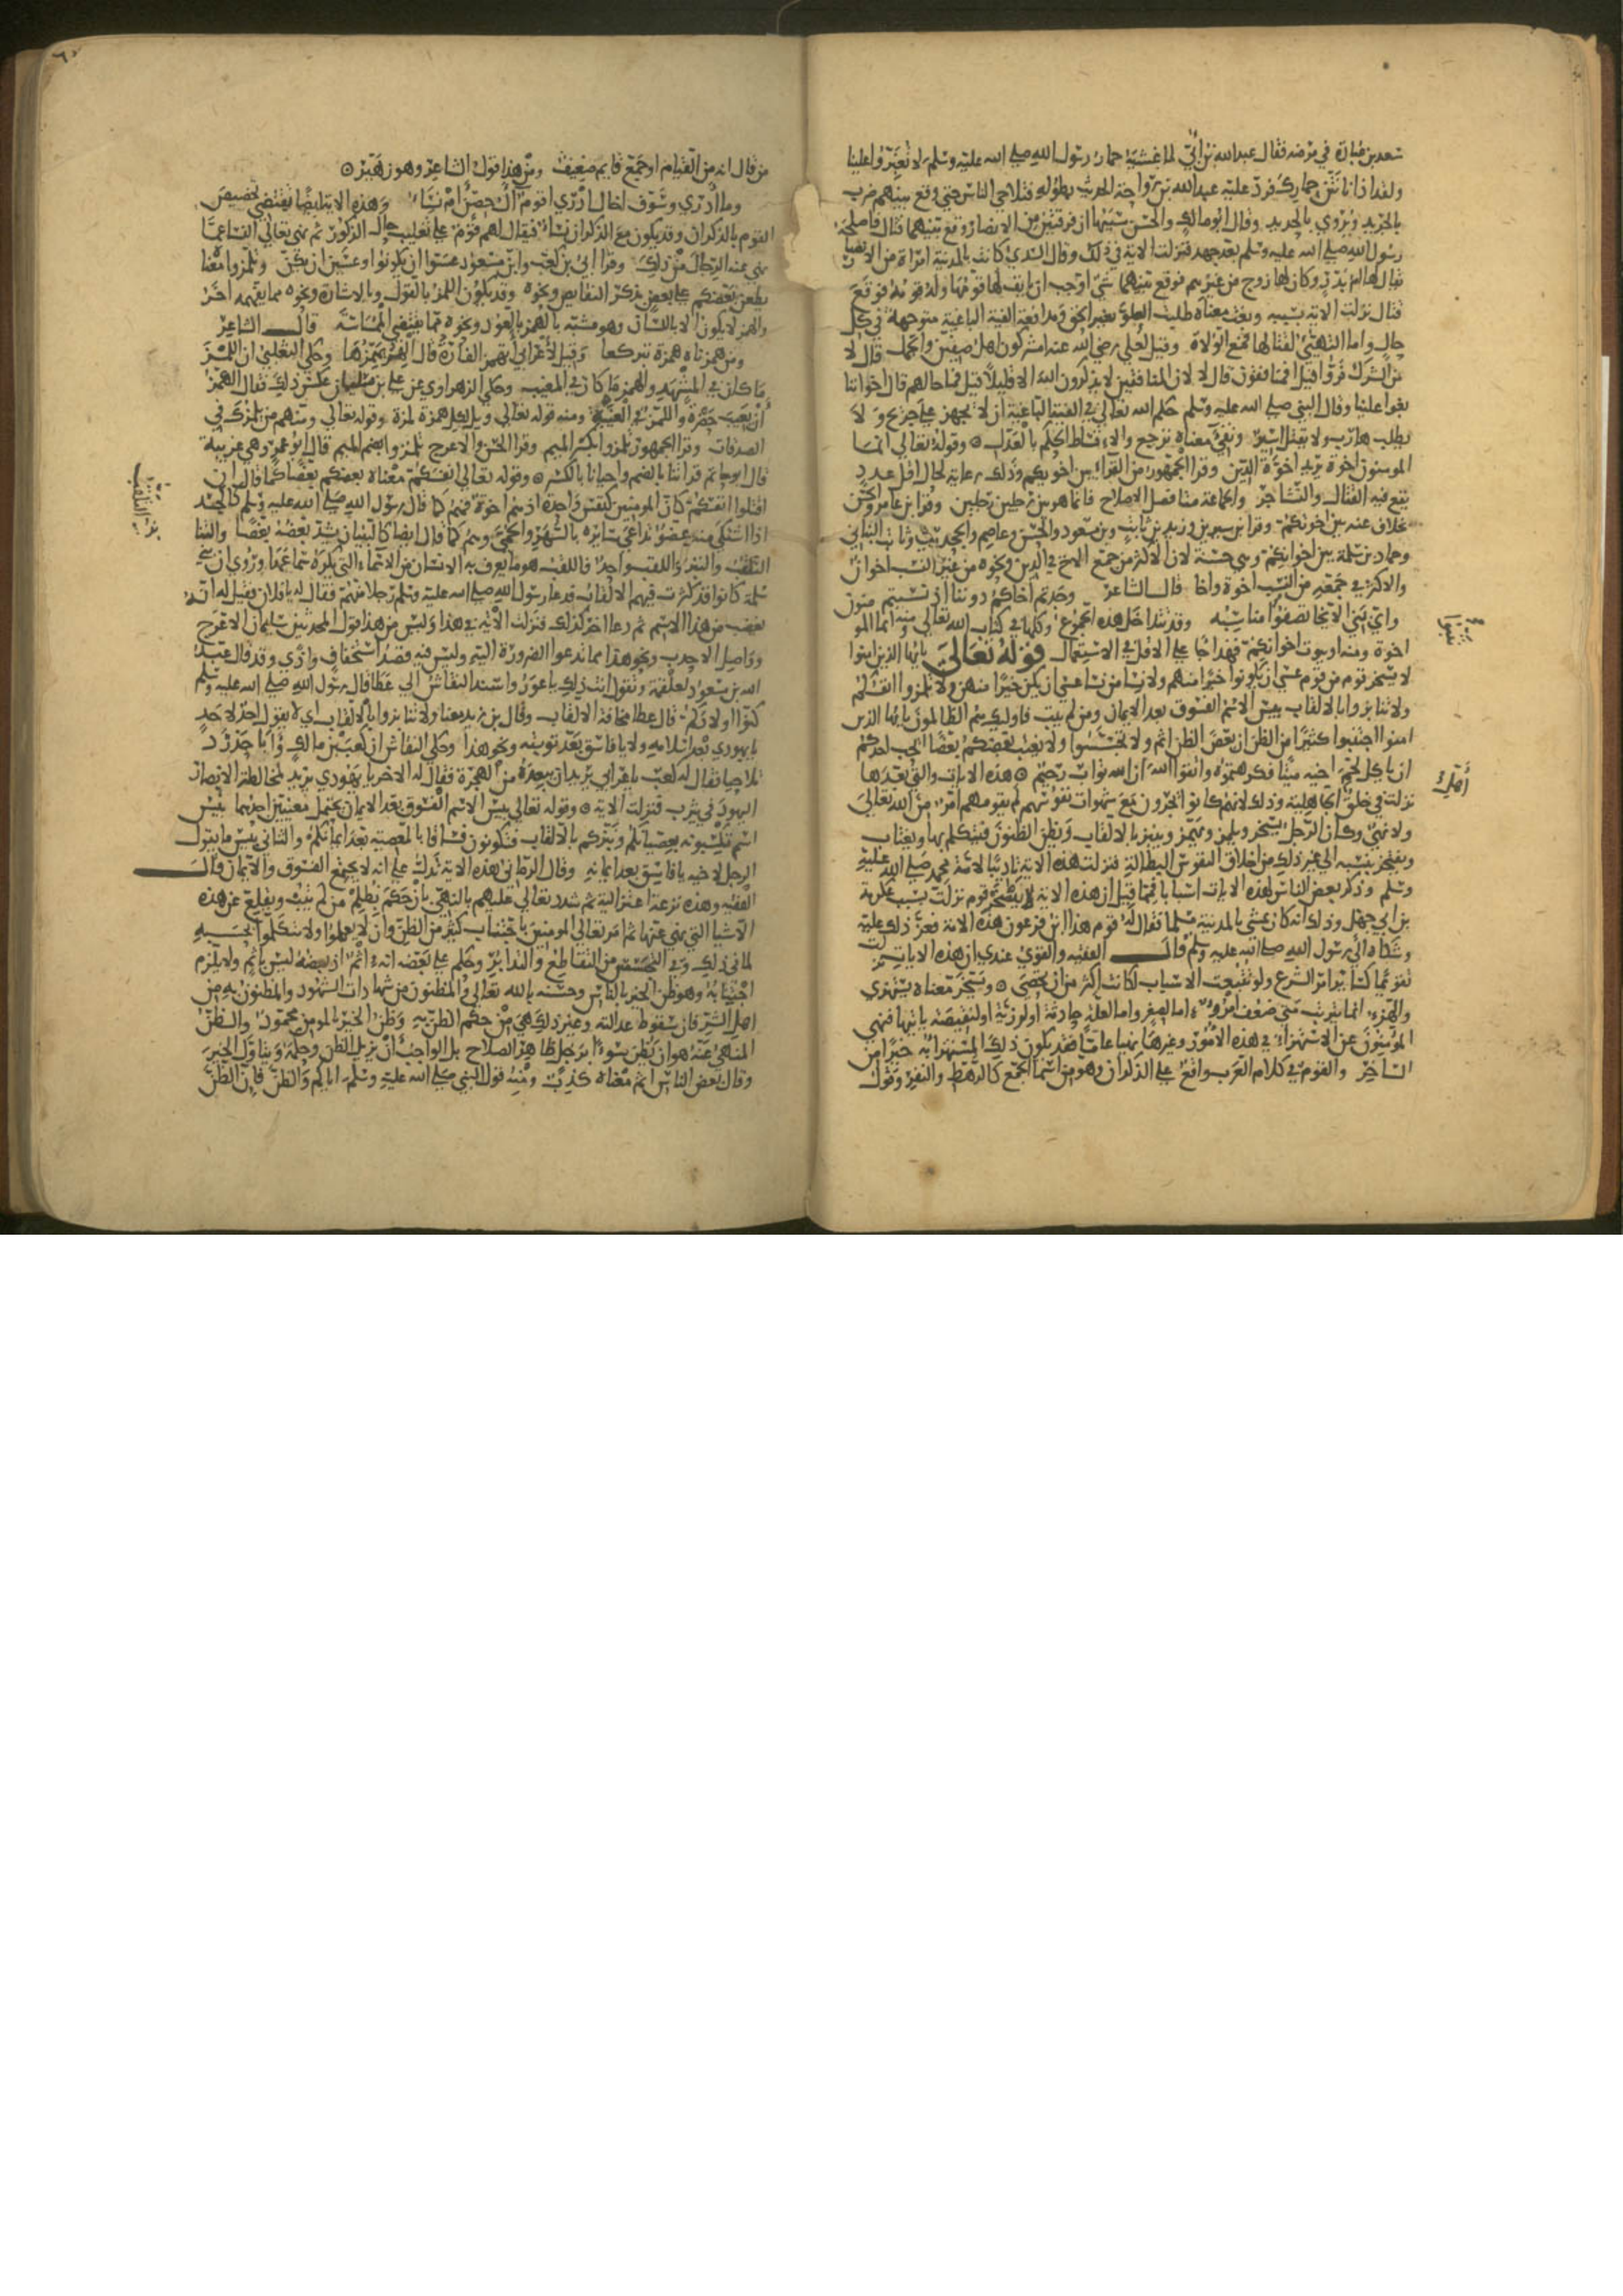 سعد بن عبادة في مرضه فقال عبد الله بن أبي لما غشيه حمار رسول الله صلى الله عليه وسلم لا تغبروا علينا
ولقد اذانا نتن حمارك فرد عليه عبد الله بن رواحة الحديث بطوله فتلاحى الناس حتى وقع بينهم ضرب
بالجريد ويروي بالحديد وقال ابو مالك والحسن سببها ان فرقتين من الانصار وقع بينهما قتال فاصلحه
رسول الله صلى الله عليه وسلم بعد جهد فنزلت الاية في ذلك وقال السدي كانت بالمدينة امراة من الانصار
يقال لها ام بدر وكان لها زوج من غيرهم فوقع بينهما شي اوجب ان يانف لها قومها وله قومه فوقع
قتال نزلت الاية بسببه وبغت معناه طلبت العلو بغير الحق ومدافعة الفية الباغية متوجهة في كل
حال واما التهيئ لقتالها فمع الولاة وقيل لعلي رضي الله عنه امشركون اهل صفين والجمل قال لا
من الشرك فروا قيل افمنافقون قال لا لان المنافقين لا يذكرون الله الا قليلا قيل فما حالهم قال اخواننا
بغوا علينا وقال النبي صلى الله عليه وسلم حكم الله تعالى في الفية الباغية ان لا يجهز على جريح ولا
يطلب هارب ولا يقتل اسير وتفئ معناه ترجع والاقساط الحكم بالعدل وقوله تعالى انما
المومنون اخوة يريد اخوة الدين وقرا الجمهور من القراء بين اخويكم وذلك رعاية لحال اقل عدد
يقع فيه القتال والتشاجر والجماعة متى فصل الاصلاح فانما هو بين رجلين رجلين وقرا ابن عامر والحسن
بخلاف عنه بين اخوتكم وقرا ابن سيرين وزيد بن ثابت وبن مسعود والحسن وعاصم والجحدري وثابت البناني
وحماد بن سلمة بين اخوانكم وهي حسنة لان الاكثر من جمع الاخ في الدين ونحوه من غير النسب اخوان
والاكثر في جمعه من النسب اخوة واخا قال الشاعر وجدتم اخاكم دوننا اذ نسيتم
وقد تتداخل هذه الجموع وكلها في كتاب الله تعالى منه انما المو
اخوة ومنه او بيوت اخوانكم فهذا جا على الاقل في الاستعمال قوله تعالى يايها الذين امنوا
لا يسخر قوم من قوم عسى ان يكونوا خيرا منهم ولا نسا من نسا عسى ان يكن خيرا منهن ولا تلمزوا انفسكم
ولا تنابزوا بالالقاب بيس الاسم الفسوق بعد الايمان ومن لم يتب فاولئك هم الظالمون يايها الذين
امنوا اجتنبوا كثيرا من الظن ان بعض الظن اثم ولا تجسسوا ولا يغتب بعضكم بعضا ايحب احدكم
ان ياكل لحم اخيه ميتا فكرهتموه واتقوا الله ان الله تواب رحيم هذه الايات والتي بعدها
نزلت في خلق الجاهلية وذلك لانهم كانوا يجرون مع شهوات نفوسهم لم يقومهم امر من الله تعالى
ولا نهي وكان الرجل يسخر ويلمز ويهمز وينبز بالالقاب ويظن الظنون فيتكلم بها ويغتاب
ويفتخر بنسبه الى غير ذلك من اخلاق النفوس البطالة فنزلت هذه الاية تاديبا لامة محمد صلى الله عليه
وسلم وذكر بعض الناس لهذه الايات اسبابا فمما قيل ان هذه الاية لا يسخر قوم نزلت بسبب عكرمة
بن ابي جهل وذلك انه كان يمشي بالمدينة مسلما فقال له قوم هذا ابن فرعون هذه الامة فعز ذلك عليه
وشكاه الى رسول الله صلى الله عليه وسلم قال الفقيه والقوي عندي ان هذه الايات نزلت
تقويما كساير امر الشرع ولو تتبعت الاسباب لكانت اكثر من ان تحصى ويسخر معناه يستهزي
والهزء انما يترتب متى ضعف امرؤ اما لصغر واما لعلة حادثة او لرزية او لنقيصة ياتيها فنهي
المومنون عن الاستهزاء في هذه الامور وغيرها نهيا عاما فقد يكون ذلك المستهزا به خيرا من
الساخر والقوم في كلام العرب واقع على الذكران وهو من اسما الجمع كالرهط والنفر وقول
اقلك
من قال انه من القيام او جمع قايم ضعيف ومن هذا قول الشاعر وهو زهير
وما ادري وسوف اخال ادري اقوم ال حصن ام نساء وهذه الاية ايضا تقتضي تخصيص
القوم بالذكران وقد يكون مع الذكران نساء فيقال لهم قوم على تغليب حال الذكور ثم نهى تعالى النسا عما
نهى عنه الرجال من ذلك وقرا ابي بن كعب وابن مسعود عسوا ان يكونوا وعسين ان يكن وتلمزوا معناه
يطعن بعضكم على بعض بذكر النقايص ونحوه وقد يكون اللمز بالقول وبالاشارة ونحوه مما يفهمه اخر
والهمز لا يكون الا باللسان وهو مشبه بالهمز بالعود ونحوه مما يقتضي المماسة قال الشاعر
ومن همزناه همزة تبركعا وقيل لاعرابي اتهمز الفارة قال الهر يهمزها وحكى الثعلبي ان اللمز
ما كان في المشهد والهمز ما كان في المغيب وحكى الزهراوي عن علي بن سليمان عكس ذلك فقال الهمز
ان يعيب حضرة واللمز في الغيبة ومنه قوله تعالى ويل لكل همزة لمزة وقوله تعالى ومنهم من يلمزك في
الصدقات وقرا الجمهور تلمزوا بكسر الميم وقرا الحسن والاعرج تلمزوا بضم الميم قال ابو عمرو هي عربية
قال ابو حاتم قراتنا بالضم واحيانا بالكسر وقوله تعالى انفسكم معناه بعضكم بعضا كما قال ان
اقتلوا انفسكم كان المومنين كنفس واحدة اذ هم اخوة فهم كما قال رسول الله صلى الله عليه وسلم كالجسد
اذا اشتكى منه عضو تداعى سايره بالسهر والحمى وهم كما قال ايضا كالبنيان يشد بعضه بعضا والتنا
التلقب والنبز واللقب واحد فاللقب هو ما يعرف به الانسان من الاسماء التي يكره سماعها وروي ان بني
سلمة كانوا قد كثرت فيهم الالقاب فدعا رسول الله صلى الله عليه وسلم رجلا منهم فقال له يا فلان فقيل له انه
يغضب من هذا الاسم ثم دعا اخر كذلك فنزلت الاية في هذا وليس من هذا قول المحدثين سليمان الاعرج
وواصل الاحدب ونحو هذا مما تدعوا الضرورة اليه وليس فيه قصد استخفاف واذى وقد قال عبد
الله بن مسعود لعلقمة وتقول انت ذلك يا عور واسند النقاش الى عطا قال رسول الله صلى الله عليه وسلم
كنوا اولادكم قال عطا مخافة الالقاب وقال بن زيد معنا ولا تنابزوا بالالقاب اي لا يقول احد لاحد
يا يهودي بعد اسلامه ولا يا فاسق بعد توبته ونحو هذا وحكى النقاش ان كعب بن مالك وابا حدرد
تلاحيا فقال له كعب يا عرابي يريد ان يبعده من الهجرة فقال له الاخر يا يهودي يريد لمخالطة الانصار
اليهود في يثرب فنزلت الاية وقوله تعالى بيس الاسم الفسوق بعد الايمان يحتمل معنيين احدهما بيس
اسم تكتسبونه بعصيانكم ونبزكم بالالقاب فتكونون فساقا بالمعصية بعد ايمانكم والثاني بيس ما يقول
الرجل لاخيه يا فاسق بعد ايمانه وقال الرماني هذه الاية تدل على انه لا يجتمع الفسوق والايمان قال
الفقيه وهذه نزعة اعتزالية ثم شدد تعالى عليهم بالنهي بان حكم بظلم من لم يتب ويقلع عن هذه
الاشيا التي نهى عنها ثم امر تعالى المومنين باجتناب كثير من الظن وان لا يعملوا ولا يتكلموا بحسبه
لما في ذلك وفي التجسس من التقاطع والتدابر وحكم على بعضه انه اثم اذ بعضه ليس باثم ولا يلزم
اجتنابه وهو ظن الخير بالناس وحسنه بالله تعالى والمظنون من شهادات الشهود والمظنون به من
اهل الشر فان سقوط عدالته وغير ذلك هي من حكم الظن به وظن الخير بالمومن محمود والظن
المنهي عنه هو ان تظن سوءا برجل ظاهره الصلاح بل الواجب ان تزيل الظن وحكمه وتتاول الخير
وقال بعض الناس اثم معناه كذب ومنه قول النبي صلى الله عليه وسلم اياكم والظن فان الظن